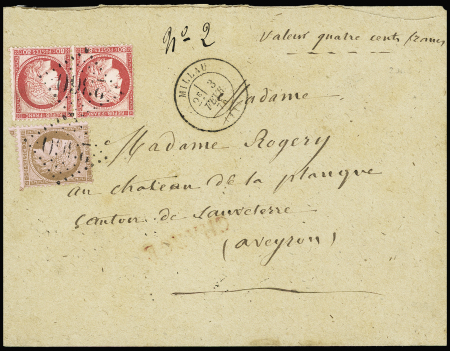 N° 2
Valeur quatre cents francs
MILLAU
3
FEVR
Madame
Madame Rogery
au chateau de la planque
canton de Sauveterre
(aveyron)